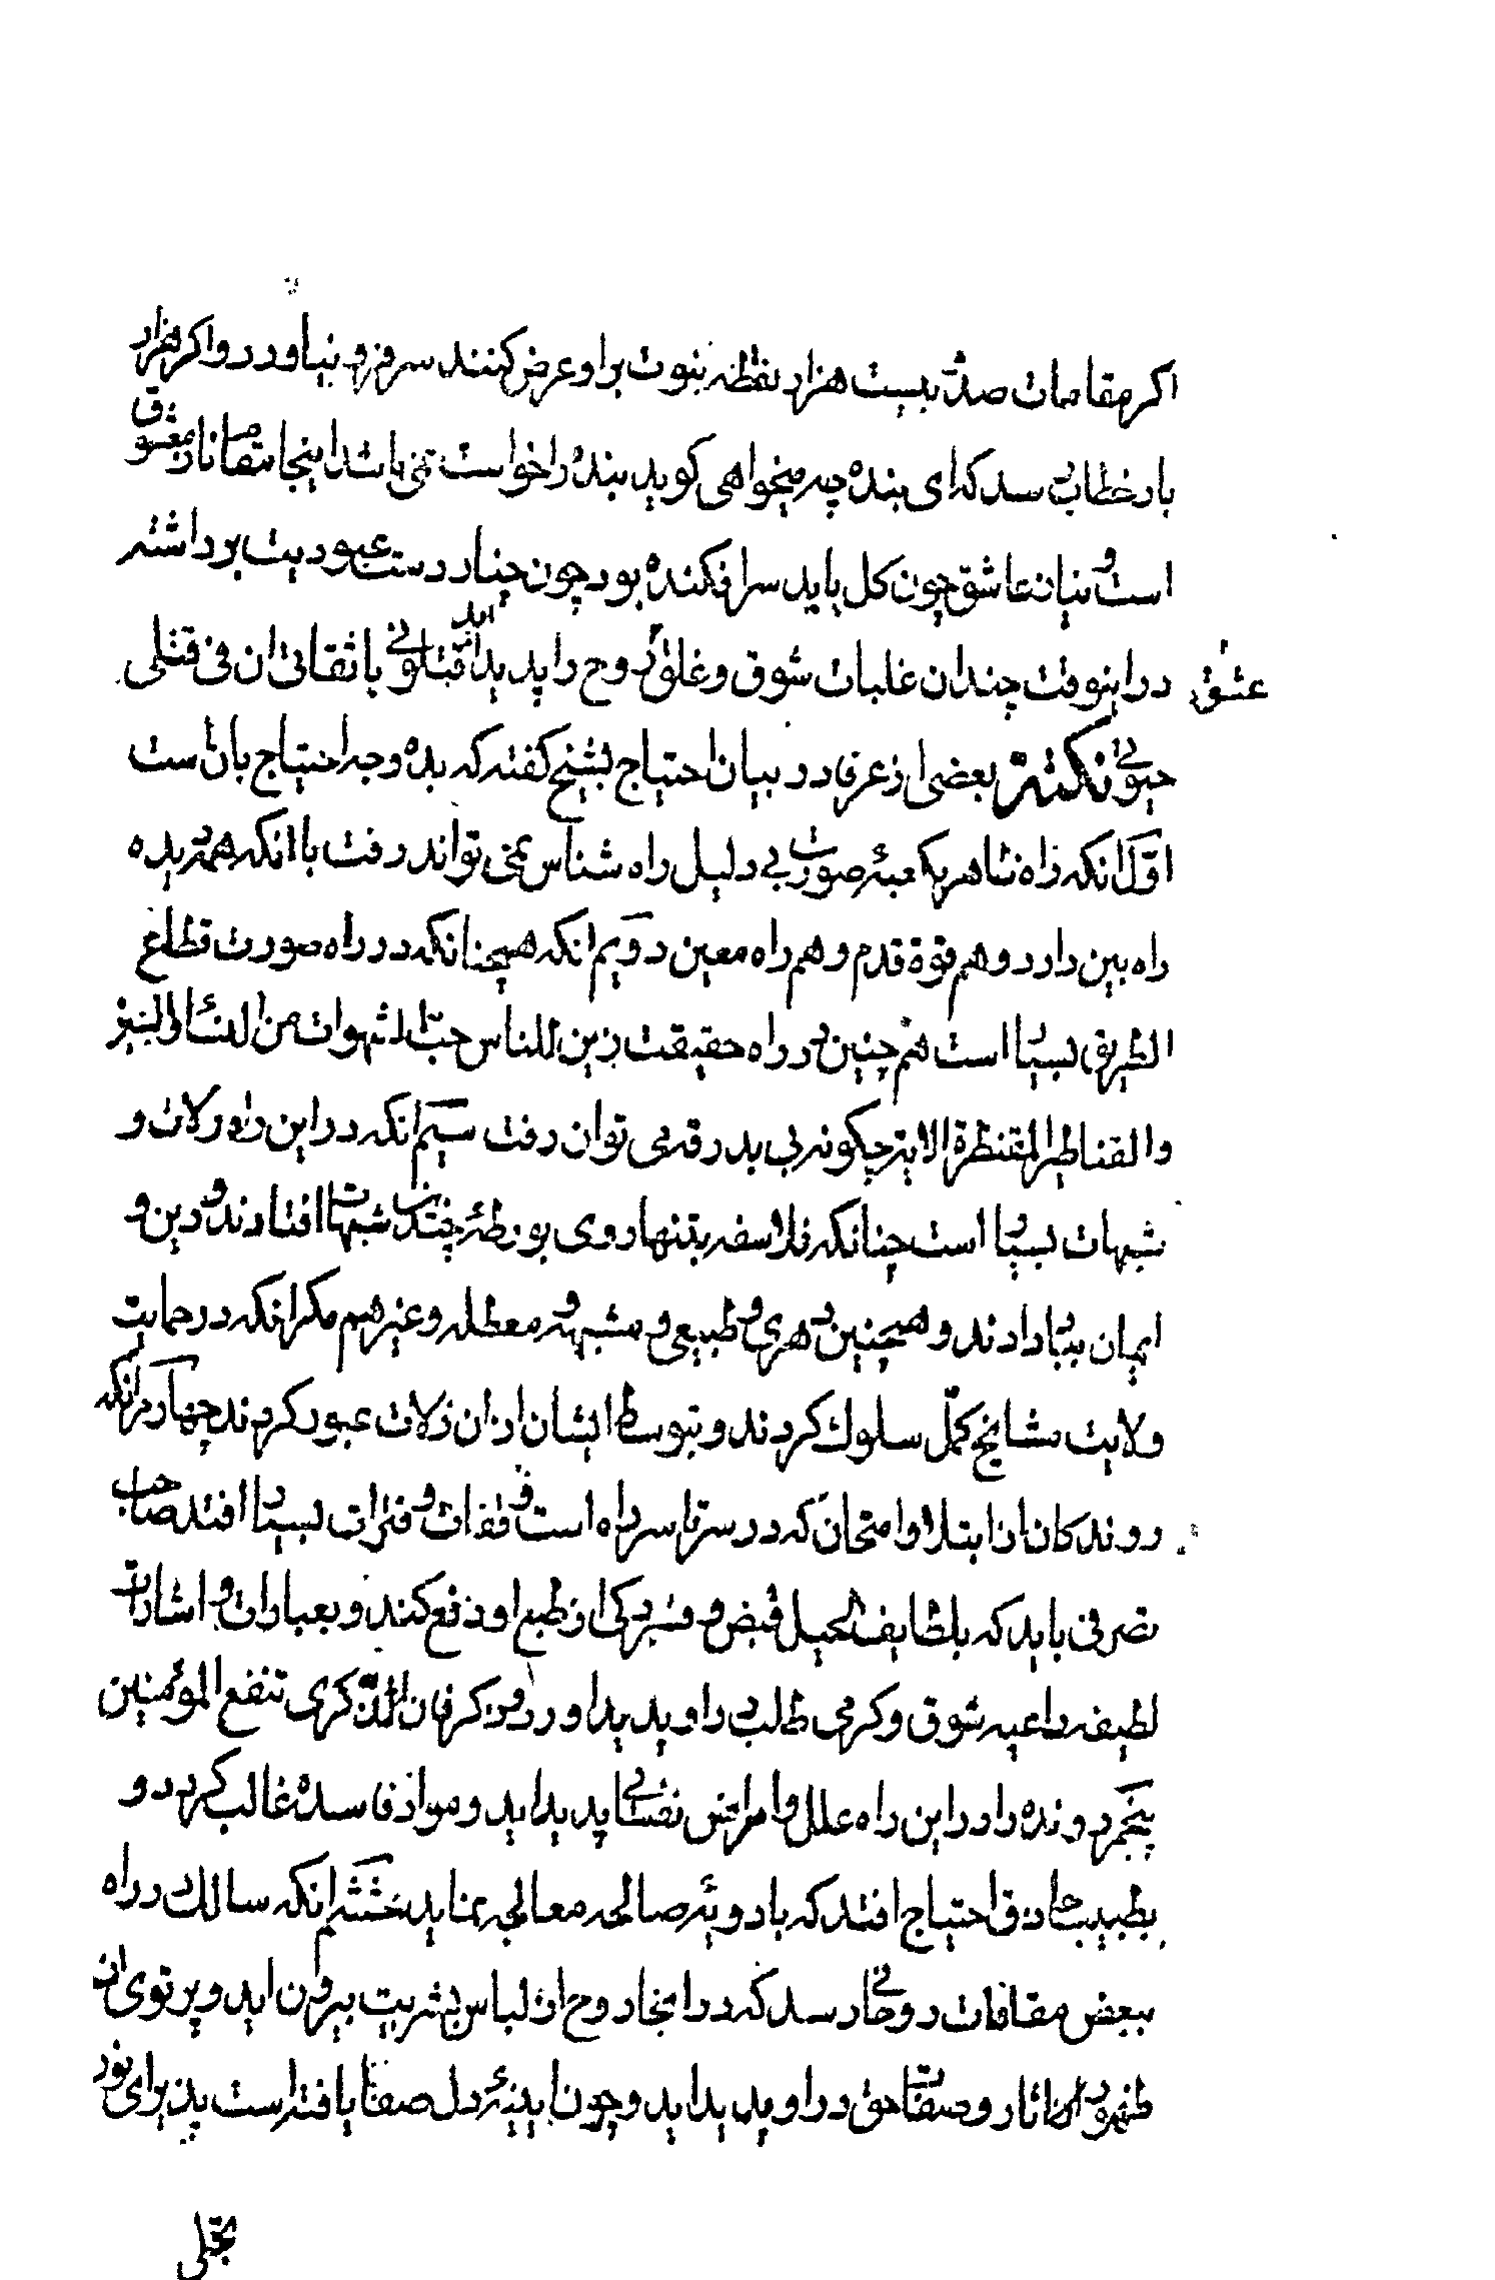 اکر مقامات صد و بیست هزار نقطه نبوت بر او عرض کنند سر فرو نیاورد و اکر هزار
بار خطاب رسد که ای بنده چه میخواهی کوید بنده را خواست نمی باشد اینجا مقام ناز معشوق
است و نیاز عاشق چون کل باید سر افکنده بود چون چنار دست عبودیت برداشته
عشق در اینوقت چندان غلبات شوق و غلق روح را پدید اید اقتلونی یا ثقاتی ان فی قتلی
حیوتی نکته بعضی از عرفا در بیان احتیاج بشیخ کفته که بده وجه احتیاج بان است
اول انکه راه ظاهر بکعبهٔ صورت بی دلیل راه شناس نمی تواند رفت با انکه هم دیده
راه بین دارد و هم قوة قدم و هم راه معین دویم انکه همچنانکه در راه صورت قطاع
الطریق بسیار است هم چنین در راه حقیقت زین للناس حب الشهوات من النساء والبنین
والقناطیر المقنطرة الایة چکونه بی بدرقه می توان رفت سیم انکه در این راه زلات و
شبهات بسیار است چنانکه فلاسفه بتنها روی بورطهٔ چندین شبهات افتادند و دین و
ایمان بباد دادند و همچنین دهری و طبیعی و مشبهه و معطله و غیرهم مکر انکه در حمایت
ولایت مشایخ کمل سلوک کردند و بتوسط ایشان از ان زلات عبور کردند چهارم انکه
روندکان از ابتلا و امتحان که در سرتاسر راه است وقفات و فترات بسیار افتد صاحب
تصرفی باید که بلطایف الحیل قبض و فسردکی از طبع او دفع کند و بعبارات و اشارات
لطیفه داعیه شوق و کرمی طلب در او پدید اورد و ذکر فان الذکری تنفع المؤمنین
پنجم رونده را در این راه علل و امراض نفسانی پدید اید و مواد فاسده غالب کردد و
بطبیب حاذق احتیاج افتد که بادویهٔ صالحه معالجه نماید ششم انکه سالک در راه
ببعض مقامات روحانی رسد که در اینجا روح از لباس بشریت بیرون اید و پرتوی از
ظهور اثار و صفات حق در او پدید اید و چون اینهٔ دل صفا یافته است پذیرای نور
تجلی